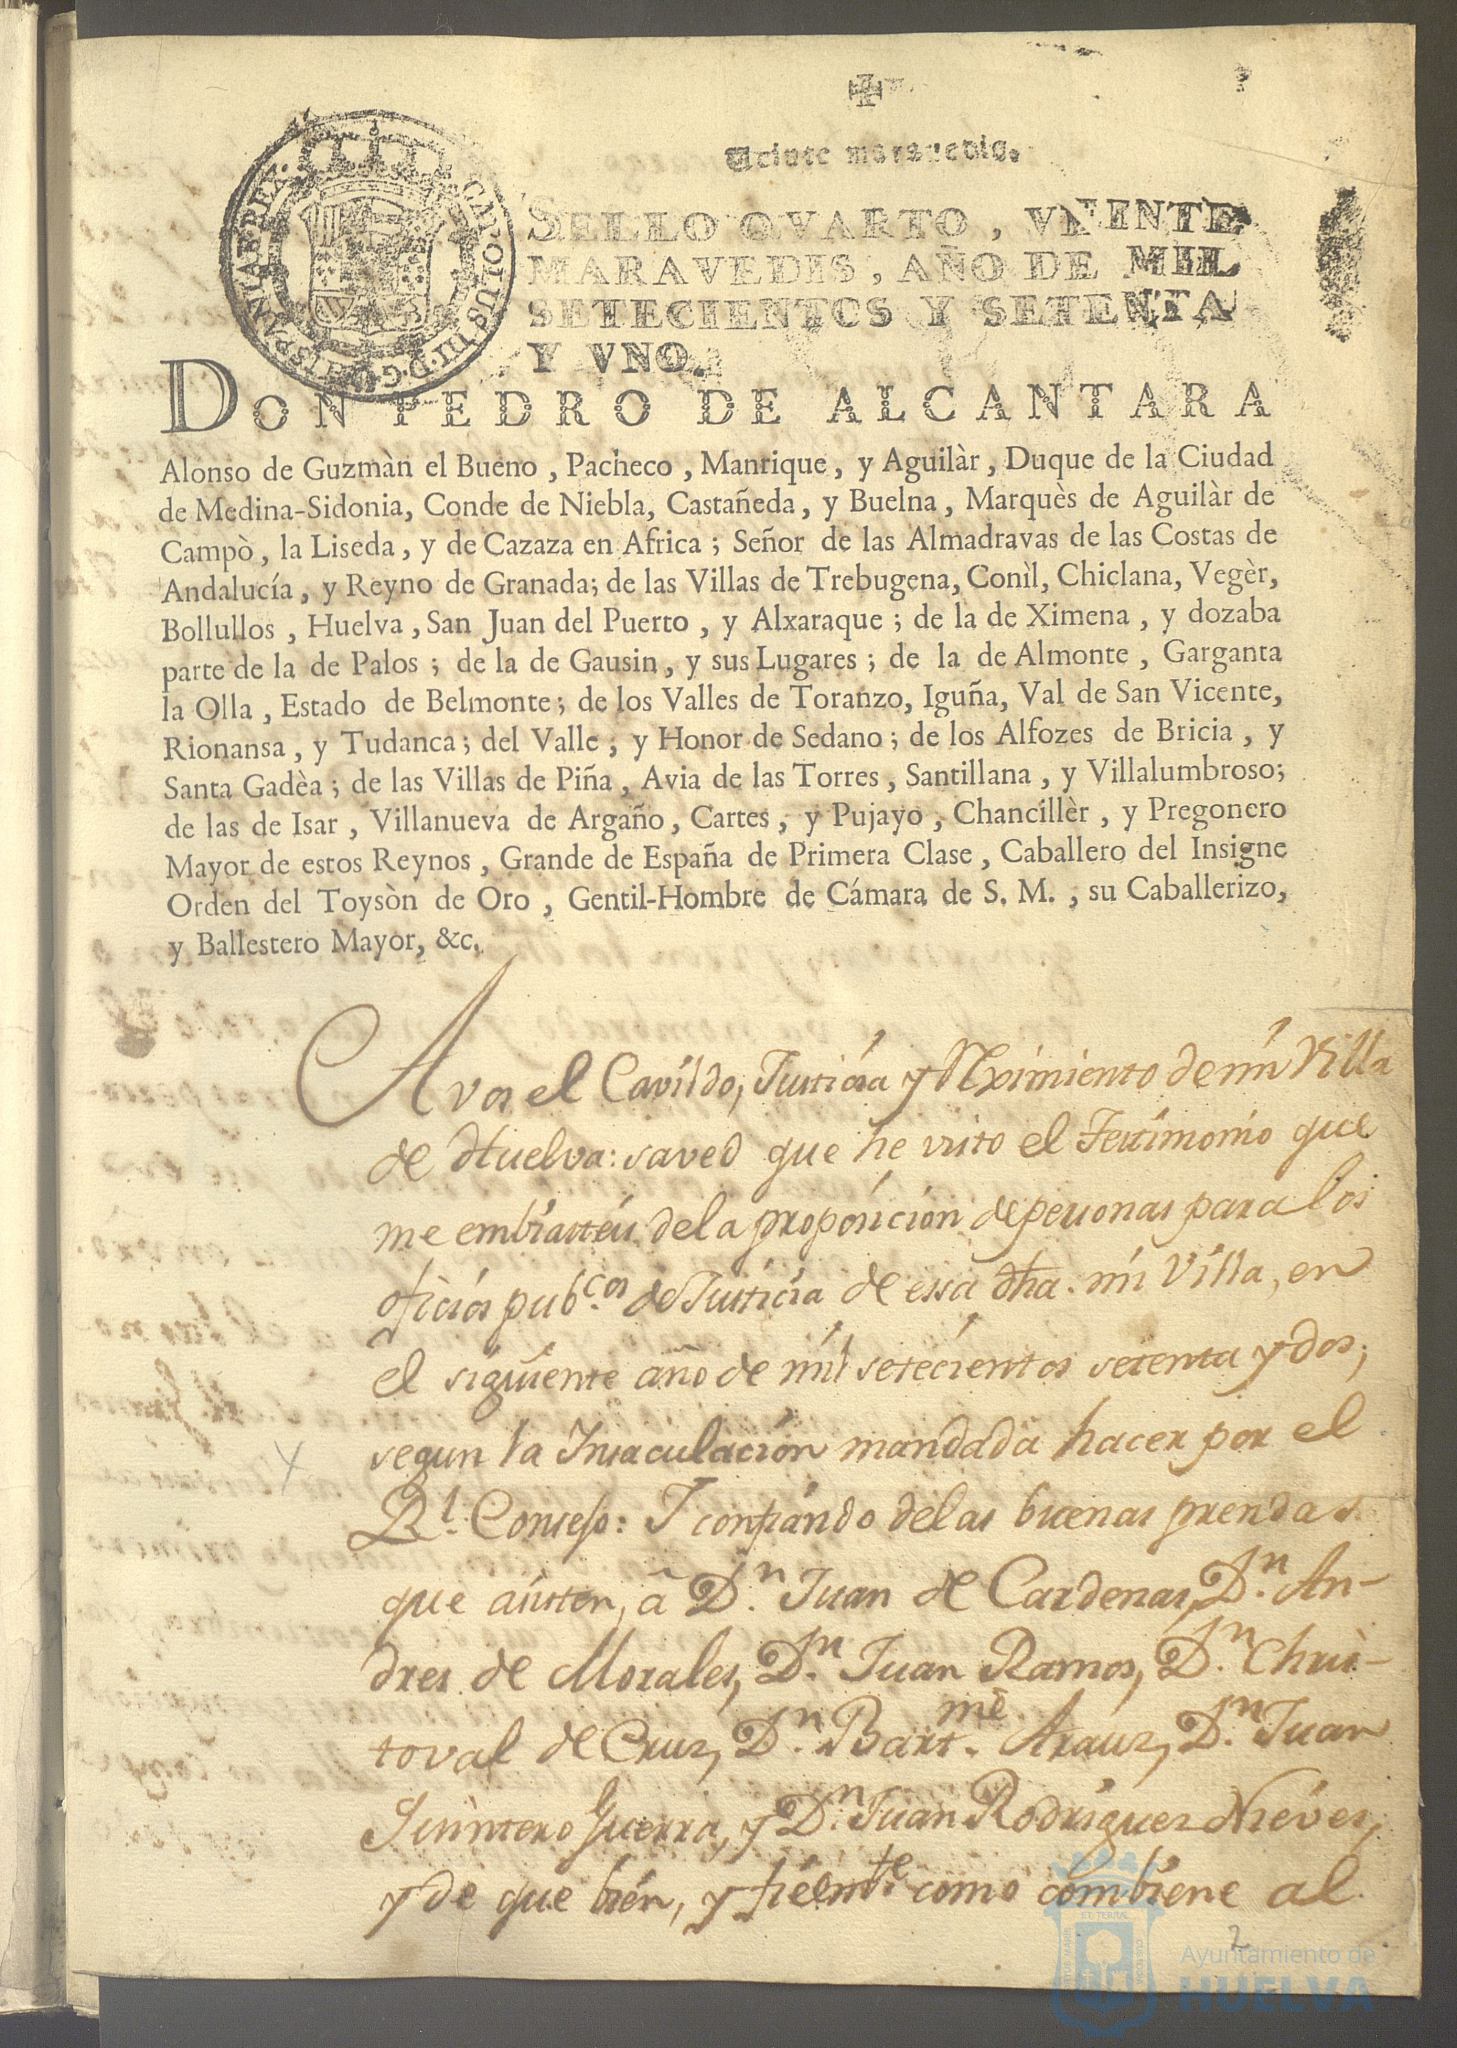 Veinte maravedis.
SELLO QVARTO, VEINTE
MARAVEDIS, AÑO DE MIL
SETECIENTOS Y SETENTA
Y VNO.
CAROLUS III·D·G·HISPANIAR·REX·
DON PEDRO DE ALCANTARA
Alonso de Guzmàn el Bueno, Pacheco, Manrique, y Aguilàr, Duque de la Ciudad
de Medina-Sidonia, Conde de Niebla, Castañeda, y Buelna, Marquès de Aguilàr de
Campò, la Liseda, y de Cazaza en Africa; Señor de las Almadravas de las Costas de
Andalucía, y Reyno de Granada; de las Villas de Trebugena, Conìl, Chiclana, Vegèr,
Bollullos, Huelva, San Juan del Puerto, y Alxaraque; de la de Ximena, y dozaba
parte de la de Palos; de la de Gausin, y sus Lugares; de la de Almonte, Garganta
la Olla, Estado de Belmonte; de los Valles de Toranzo, Iguña, Val de San Vicente,
Rionansa, y Tudanca; del Valle, y Honor de Sedano; de los Alfozes de Bricia, y
Santa Gadèa; de las Villas de Piña, Avia de las Torres, Santillana, y Villalumbroso;
de las de Isar, Villanueva de Argaño, Cartes, y Pujayo, Chancillèr, y Pregonero
Mayor de estos Reynos, Grande de España de Primera Clase, Caballero del Insigne
Orden del Toysòn de Oro, Gentil-Hombre de Cámara de S. M., su Caballerizo,
y Ballestero Mayor, &c.
A vos el Cavildo, Justicia y Reximiento de mi Villa
de Huelva: saved que he visto el Testimonio que
me embiasteis de la proposicion de personas para los
oficios pub.cos de Justicia de essa dha. mi Villa, en
el siguiente año de mil setecientos setenta y dos,
segun la Insaculacion mandada hacer por el
Rl. Consejo: I confiando de las buenas prendas
que asisten, â D.n Juan de Cardenas, D.n An-
dres de Morales, D.n Juan Ramos, D.n Chris-
toval de Cruz, D.n Bart.me Arauz, D.n Juan
Quintero Guerra, y D.n Juan Rodriguez Nieves,
y de que bien, y fielm.te como combiene al
2
Ayuntamiento de
HUELVA